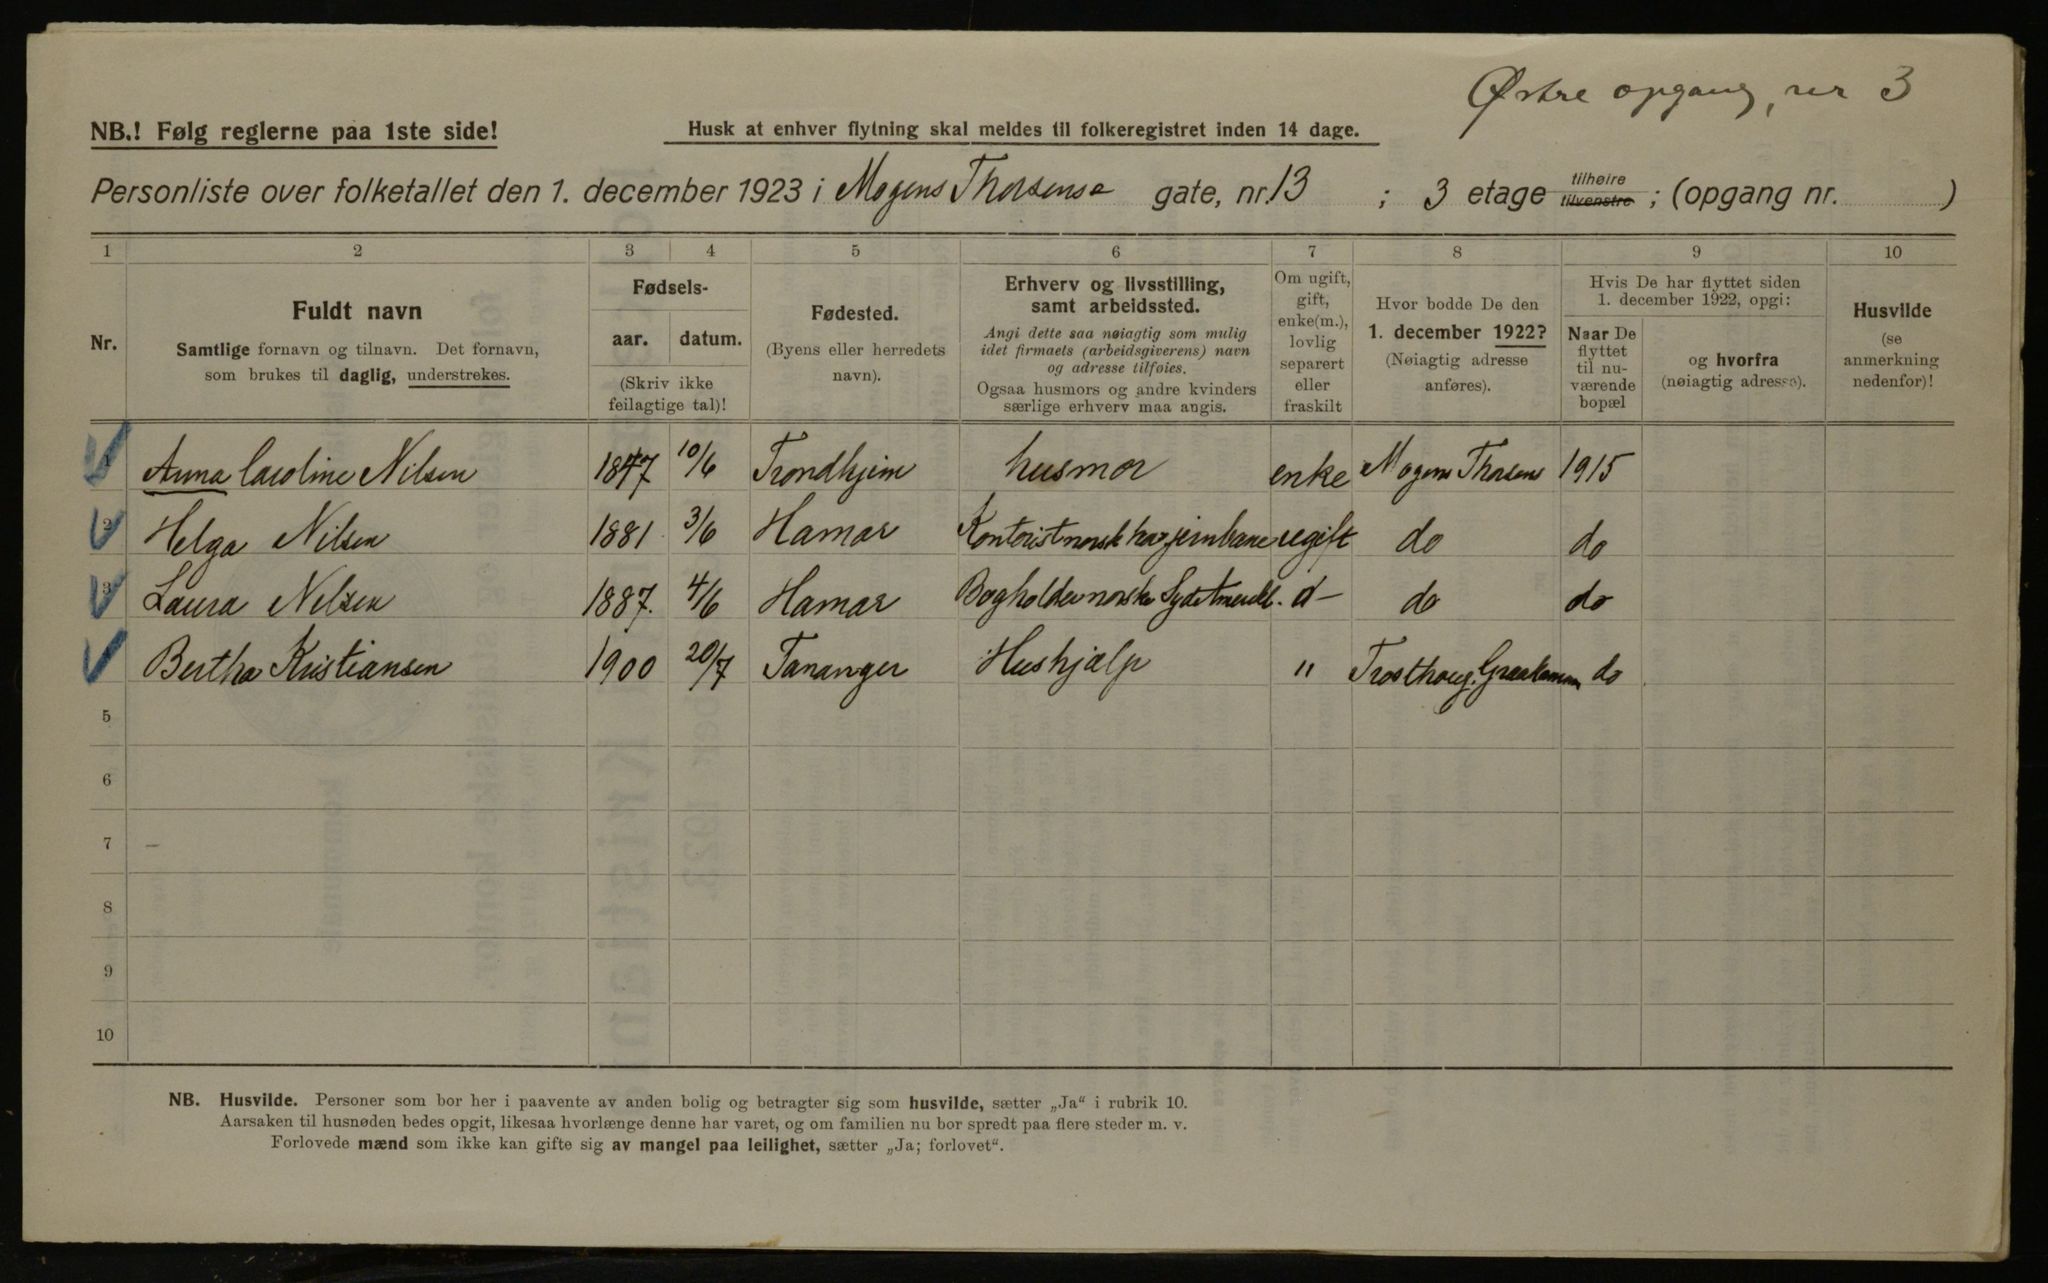 Østre opgang, nr 3
NB.! Følg reglerne paa 1ste side!
Husk at enhver flytning skal meldes til folkeregistret inden 14 dage.
Personliste over folketallet den 1. december 1923 i Mogens Thorsens gate, nr. 13 ; 3 etage tilhøire tilvenstre ; (opgang nr. )
1 2 3 4 5 6 7 8 9 10
Nr.
Fuldt navn
Samtlige fornavn og tilnavn. Det fornavn,
som brukes til daglig, understrekes.
Fødsels-
aar. datum.
(Skriv ikke
feilagtige tal)!
Fødested.
(Byens eller herredets
navn).
Erhverv og livsstilling,
samt arbeidssted.
Angi dette saa nøiagtig som mulig
idet firmaets (arbeidsgiverens) navn
og adresse tilføies.
Ogsaa husmors og andre kvinders
særlige erhverv maa angis.
Om ugift,
gift,
enke(m.),
lovlig
separert
eller
fraskilt
Hvor bodde De den
1. december 1922?
(Nøiagtig adresse
anføres).
Hvis De har flyttet siden
1. december 1922, opgi:
Naar De
flyttet
til nu-
værende
bopæl
og hvorfra
(nøiagtig adresse).
Husvilde
(se
anmerkning
nedenfor)!
1 Anna Caroline Nilsen 1847 10/6 Trondhjem husmor enke Mogens Thorsens 1915
2 Helga Nilsen 1881 3/6 Hamar Kontorist norsk ugift do do
3 Laura Nilsen 1887. 4/6 Hamar Bogholder norske d- do do
Bertha Kristiansen 1900 20/7 Tananger Hushjælp " do
5
6
7 –
8
9
10
NB. Husvilde. Personer som bor her i paavente av anden bolig og betragter sig som husvilde, sætter „Ja“ i rubrik 10.
Aarsaken til husnøden bedes opgit, likesaa hvorlænge denne har varet, og om familien nu bor spredt paa flere steder m. v.
Forlovede mænd som ikke kan gifte sig av mangel paa leilighet, sætter „Ja; forlovet“.